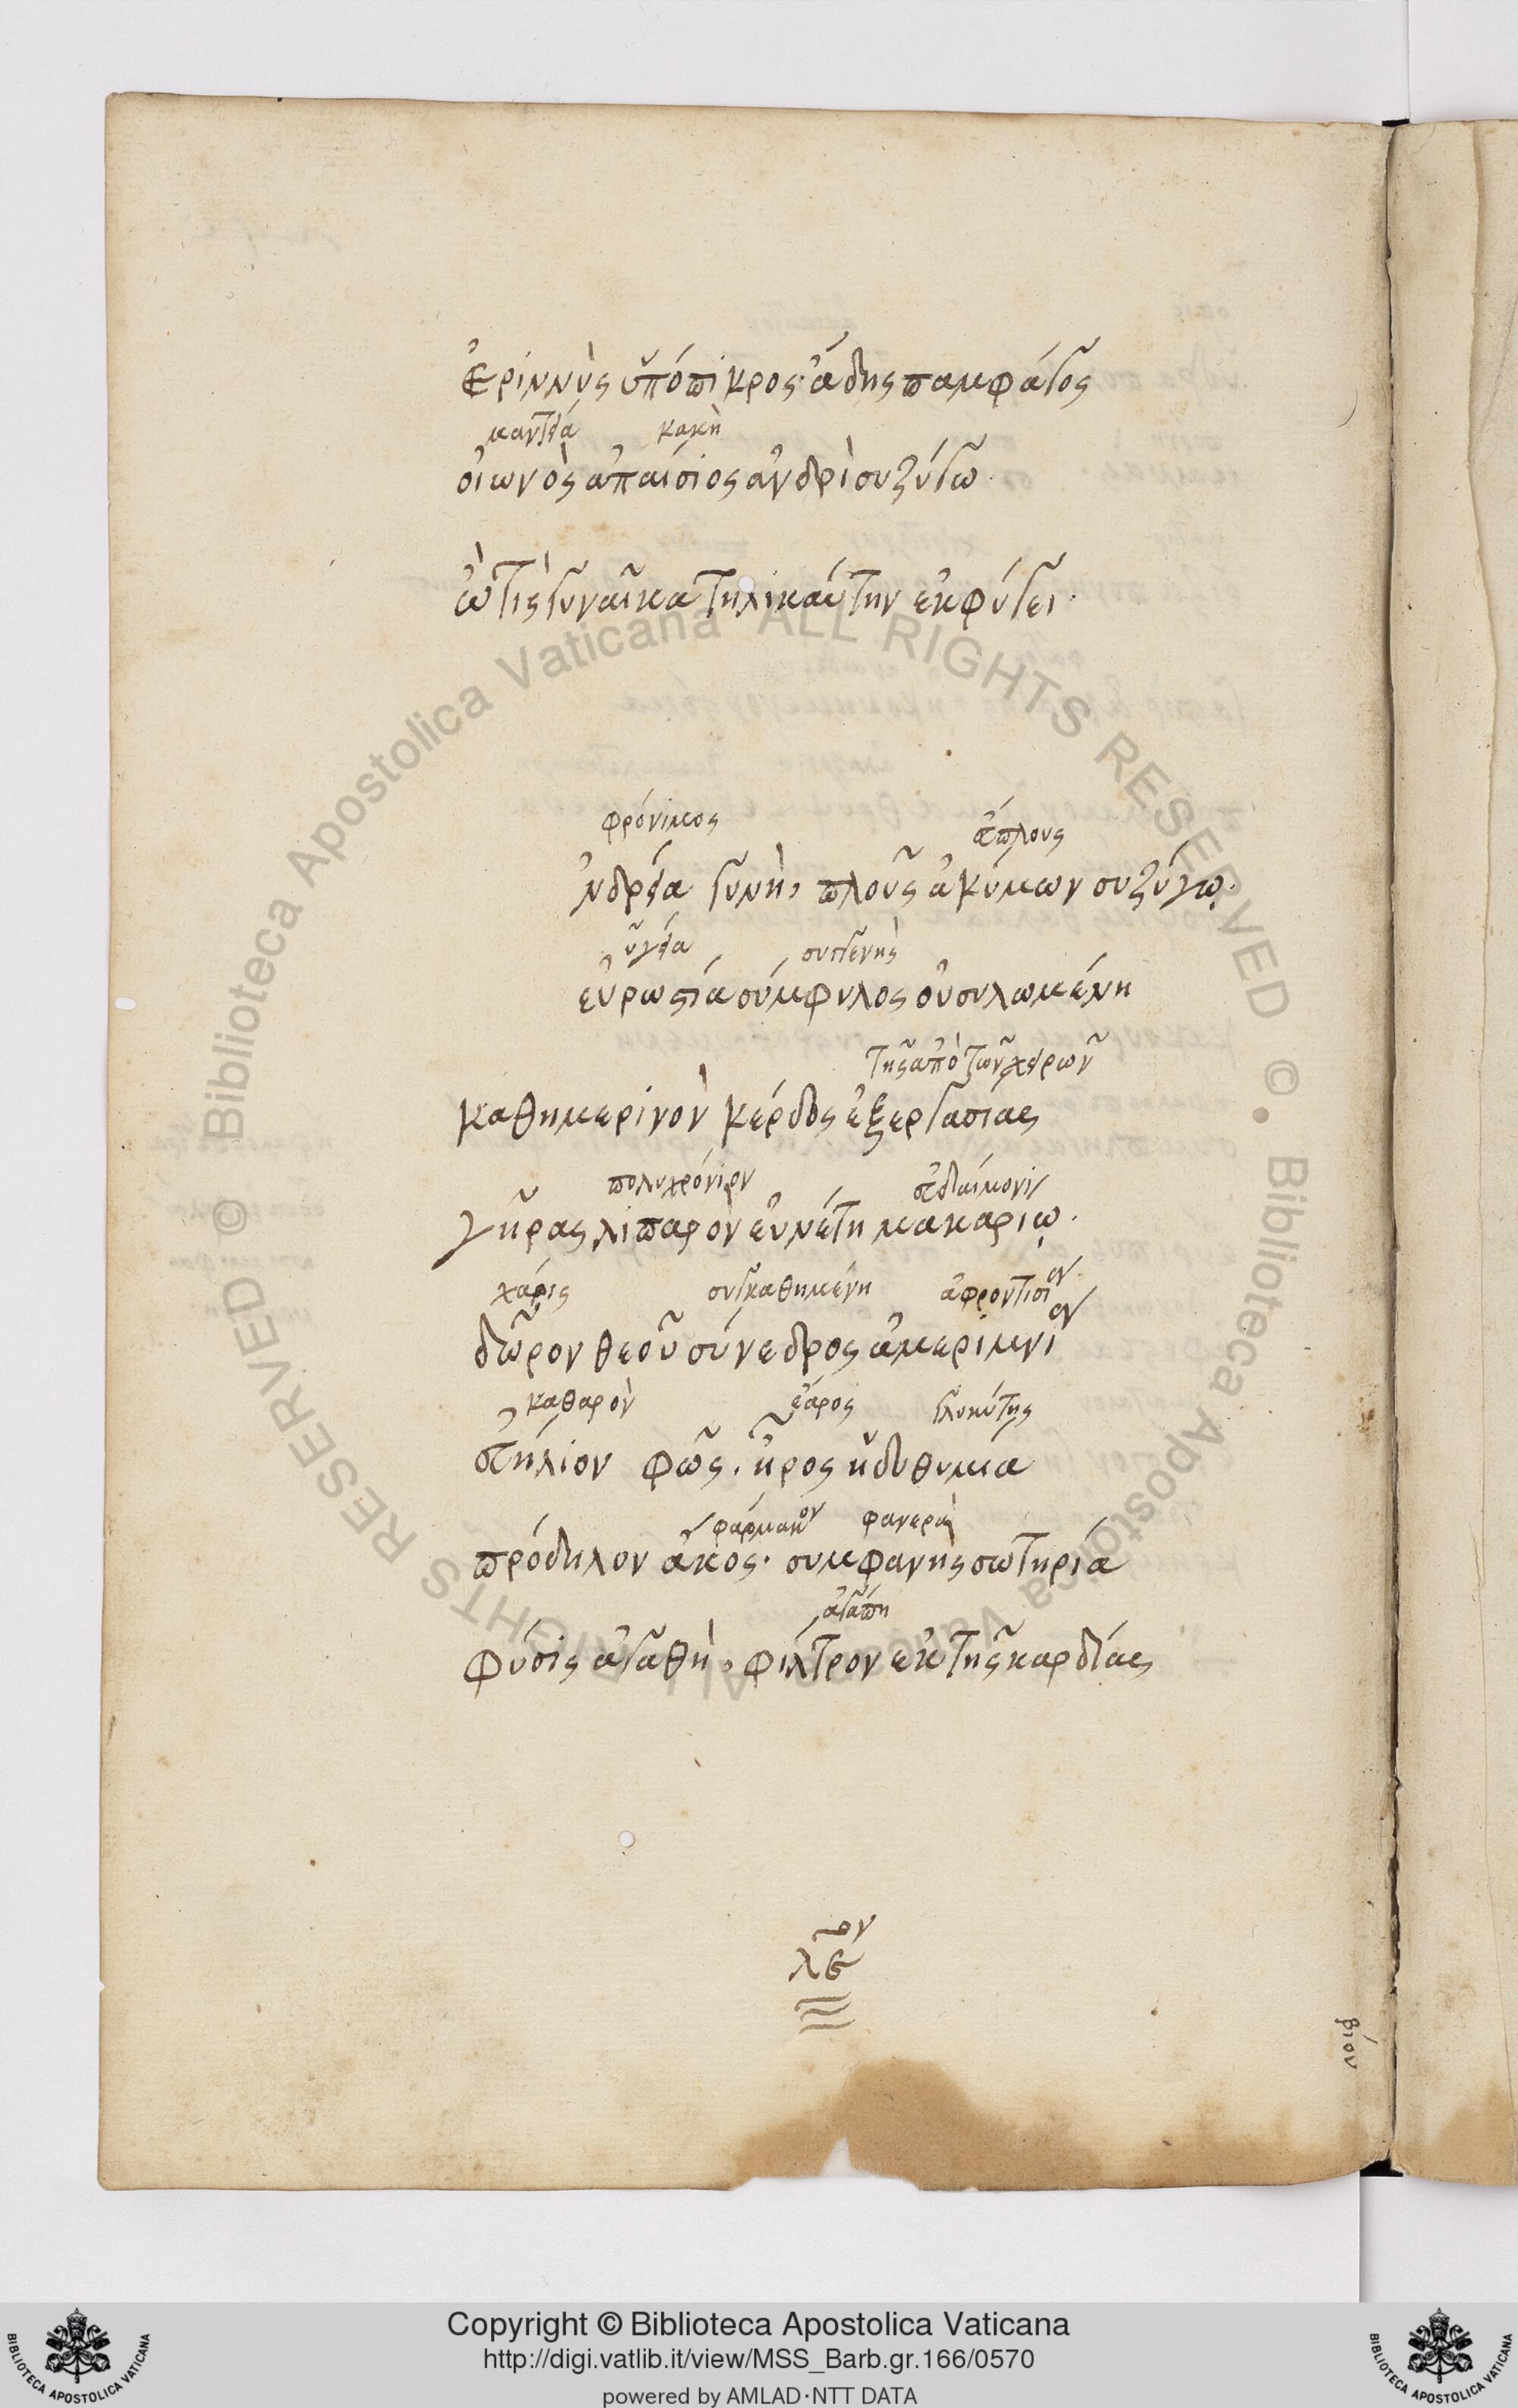 ἐριννὺς ὑπόπικρος· ἅδης παμφάγος
μαντεία κακὴ
οἰωνὸς ἀπαίσιος ἀνδρὶ συζύγω·
ὦ τὶς γυναῖκα τηλικαύτην ἐκφύγει·
φρόνιμος
νδρεία γυνὴ, πλοῦς ἀκύμων συζύγῳ·
ὑγεία συγγενὴς
εὐρωστία σύμφυλος οὐ συλωμένη
τῆς ἀπὸ τῶν χειρῶν
καθημερινὸν κέρδος ἐξεργασίας
πολυχρόνιον
γῆρας λιπαρὸν εὐνέτη μακαρίῳ·
χάρις συγκαθημένη
δῶρον θεοῦ σύνεδρος ἀμερίμνιον
καθαρὸν ἔαρος γλυκύτης
φῶς· ἦρος ἡδυθυμία
φάρμακον φανερὰ
πρόδηλον ἄκος· συμφανὴς σωτηρία
ἀγάπη
φύσις ἀγαθὴ, φίλτρον ἐκ τῆς καρδίας
βίον
Copyright © Biblioteca Apostolica Vaticana
http://digi.vatlib.it/view/MSS_Barb.gr.166/0570
powered by AMLAD·NTT DATA
BIBLIOTECA APOSTOLICA VATICANA
BIBLIOTECA APOSTOLICA VATICANA
Biblioteca Apostolica Vaticana ALL RIGHTS RESERVED ©
Biblioteca Apostolica Vaticana ALL RIGHTS RESERVED ©